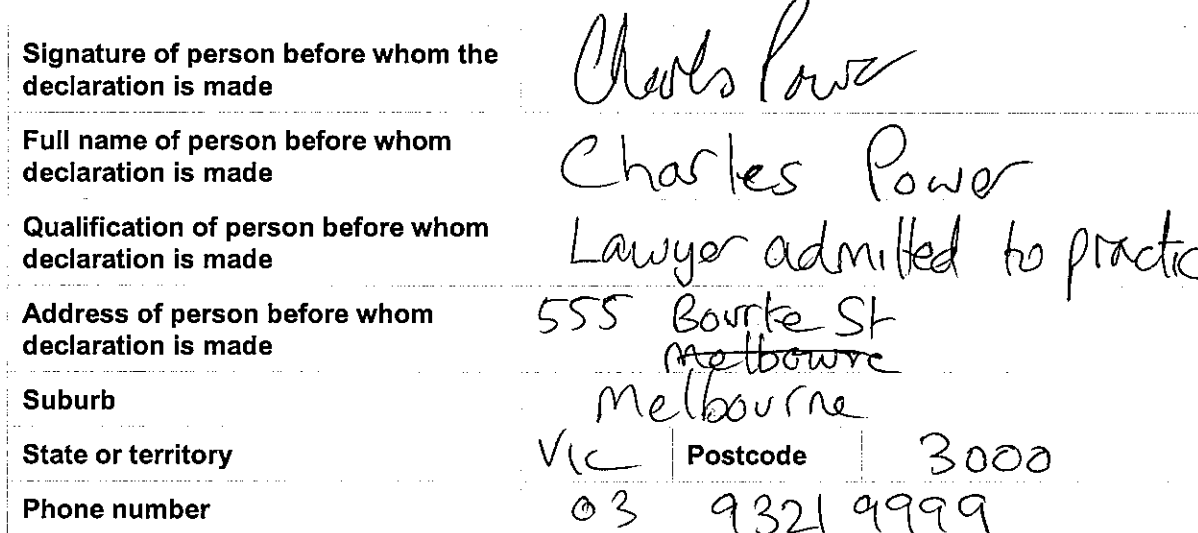 Signature of person before whom the
declaration is made
Charles Power
Full name of person before whom
declaration is made
Charles Power
Qualification of person before whom
declaration is made
Lawyer admitted to practic
Address of person before whom
declaration is made
555 Bourke St
Melbourne
Suburb
Melbourne
State or territory
VIC Postcode 3000
Phone number
03 9321 9999